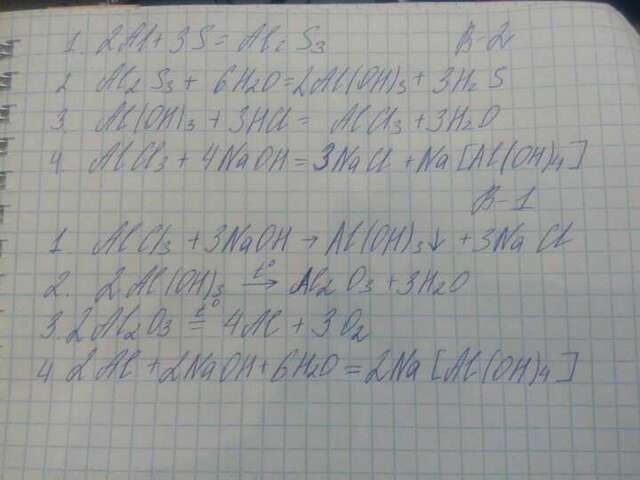 1. 2Al + 3S = Al2 S3 В-2
2 Al2 S3 + 6H2O = 2Al(OH)3 + 3H2 S
3 Al(OH)3 + 3HCl = AlCl3 + 3H2O
4 AlCl3 + 4NaOH = 3NaCl + Na [Al(OH)4]
В-1
1 AlCl3 + 3NaOH → Al(OH)3↓ + 3NaCl
2. 2Al(OH)3 t°→ Al2O3 + 3H2O
3. 2Al2O3 t°= 4Al + 3O2
4 2Al + 2NaOH + 6H2O = 2Na [Al(OH)4]